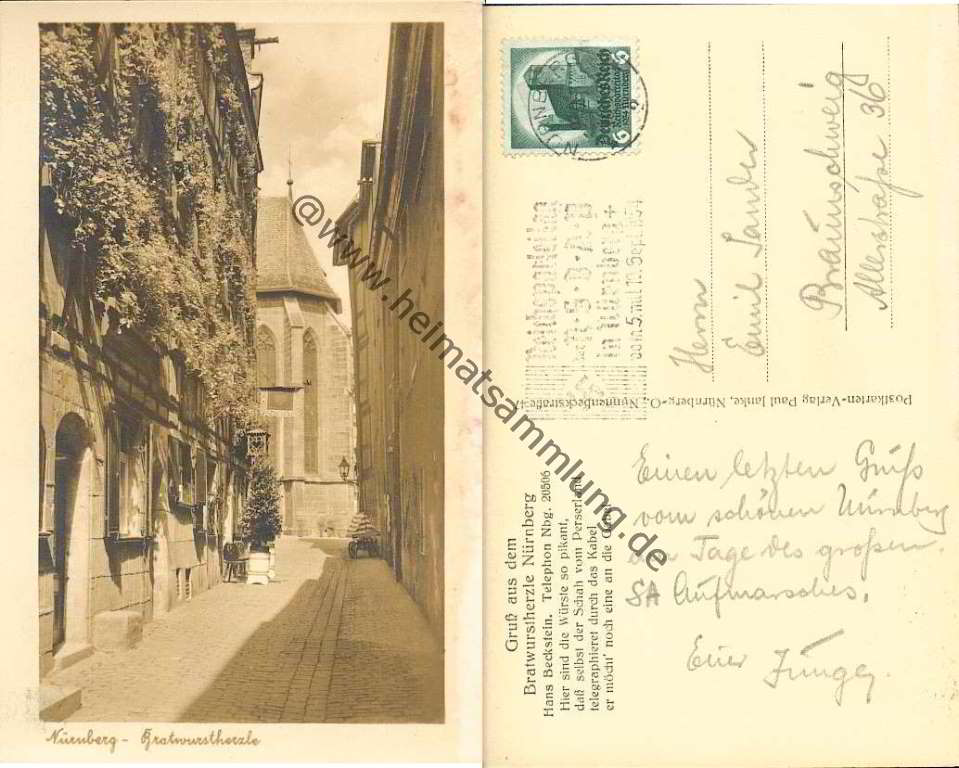 Nürnberg - Bratwurstherzle
@www.heimatsammlung.de
Gruß aus dem
Bratwurstherzle Nürnberg
Hans Beckstein. Telephon Nbg. 20506
Hier sind die Würste so pikant,
daß selbst der Schah vom Perserland
telegraphieret durch das Kabel
er möcht' noch eine an die Gabel
Einen letzten Gruß
vom schönen Nürnberg
am Tage des großen
SA Aufmarsches.
Euer Junge.
Postkarten-Verlag Paul Janke, Nürnberg-O., Nunnenbeckstraße
6 Deutsches Reich 6
Reichsparteitag
der N·S·D·A·P
in Nürnberg
vom 5. mit 10. Sept. 1934
Herrn
Emil Sander
Braunschweig
Allerstraße 36